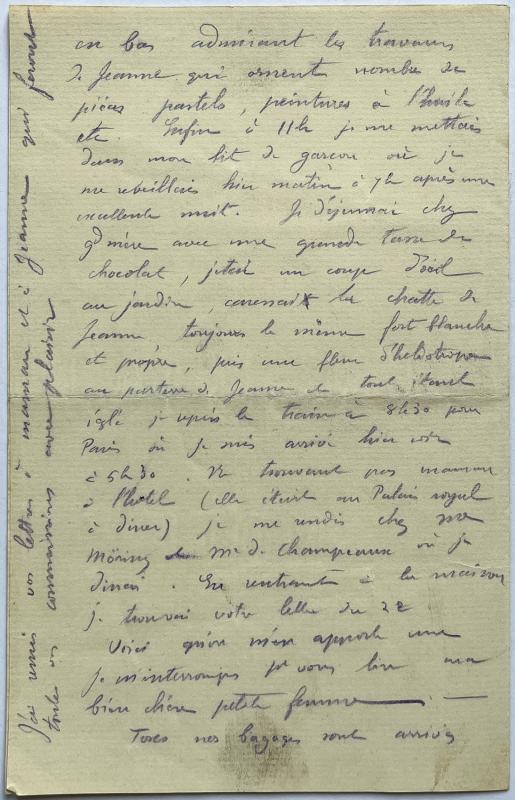 en bas admirant les travaux
de Jeanne qui ornent nombre de
pièces pastels, peintures à l'huile
etc. Enfin à 11h je me mettais
dans mon lit de garçon où je
me réveillais hier matin à 7h après une
excellente nuit. Je déjeunai chez
gd mère avec une grande tasse de
chocolat, jetai un coup d'œil
au jardin, caressai la chatte de
Jeanne toujours la même fort blanche
et propre, pris une fleur d'héliotrope
au parterre de Jeanne et tout étant
réglé je repris le train à 8h30 pour
Paris où je suis arrivé hier soir
à 5h30. Ne trouvant pas maman
à l'hôtel (elle était au Palais royal
à diner) je me rendis chez
Möring Mr de Champeaux où je
dinai. En rentrant à la maison
je trouvai votre lettre du 22
Voici qu'on m'en apporte une
je m'interromps pr vous lire ma
bien chère petite femme —— —
Tous nos bagages sont arrivés
J'ai remis vos lettres à maman et à Jeanne qui feront
toutes vos commissions avec plaisir